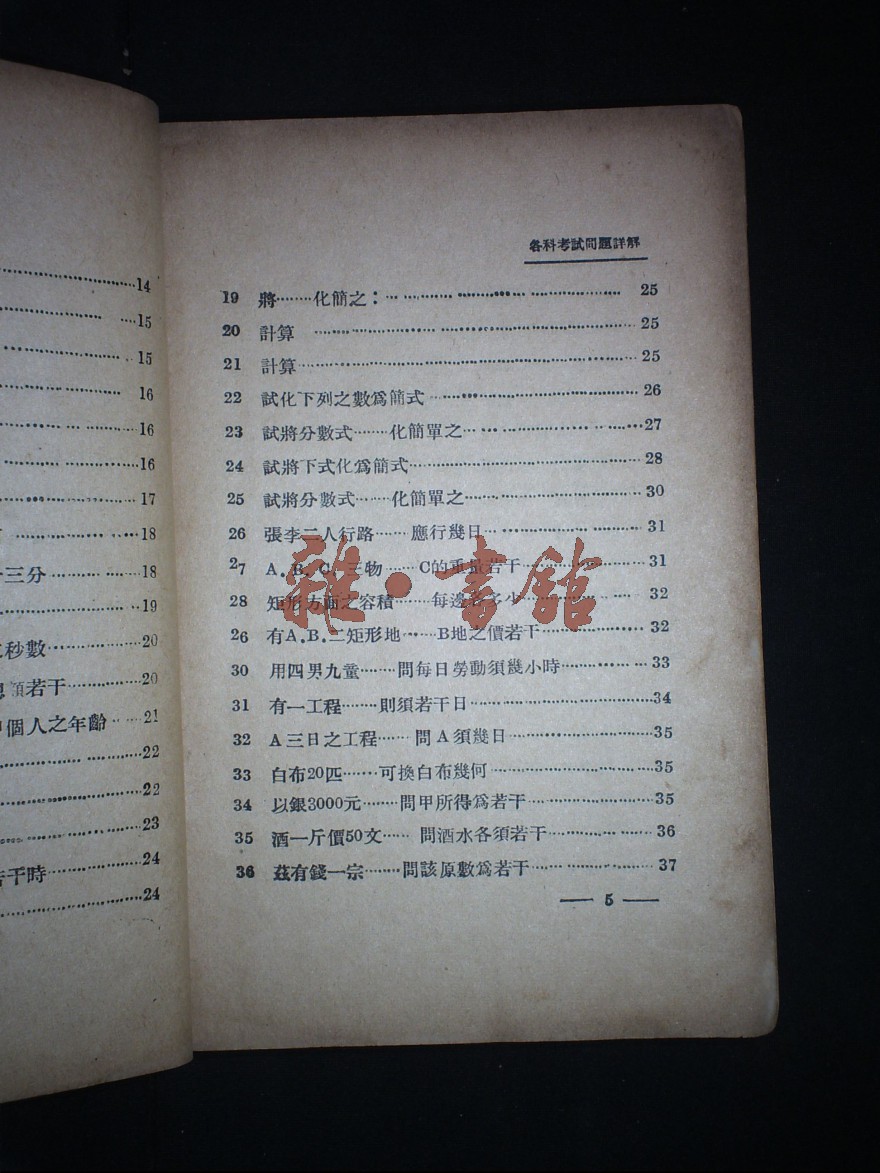 14
15
15
16
16
16
17
18
三分 18
19
秒數 20
額若干 20
個人之年齡 21
22
22
23
干時 24
24
各科考試問題詳解
19 將……化簡之： 25
20 計算 25
21 計算 25
22 試化下列之數爲簡式 26
23 試將分數式……化簡單之 27
24 試將下式化爲簡式 28
25 試將分數式……化簡單之 30
26 張李二人行路……應行幾日 31
27 A.B.C.三物……C的重量若干 31
28 矩形方面之容積……每邊各多少 32
26 有A.B.二矩形地……B地之價若干 32
30 用四男九童……問每日勞動須幾小時 33
31 有一工程……則須若干日 34
32 A三日之工程……問A須幾日 35
33 白布20匹……可換白布幾何 35
34 以銀3000元……問甲所得爲若干 35
35 酒一斤價50文……問酒水各須若干 36
36 茲有錢一宗……問該原數爲若干 37
— 5 —
雜·書館